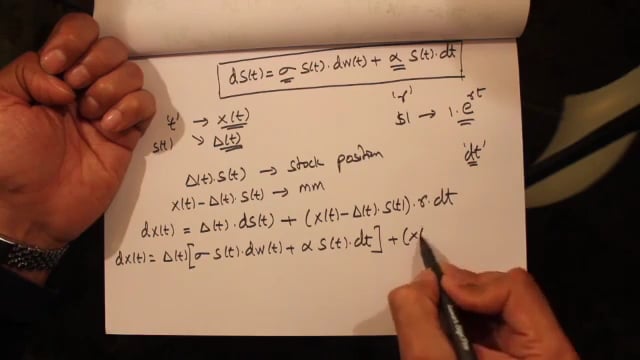 dS(t) = σ S(t)·dW(t) + α S(t)·dt
't' → X(t)
S(t) ↘ Δ(t)
'r'
$1 → 1·e^rt
'dt'
Δ(t)·S(t) → stock position
X(t) − Δ(t)·S(t) → mm
dX(t) = Δ(t)·dS(t) + (X(t) − Δ(t)·S(t))·r·dt
dX(t) = Δ(t)[σ S(t)·dW(t) + α S(t)·dt] + (X(